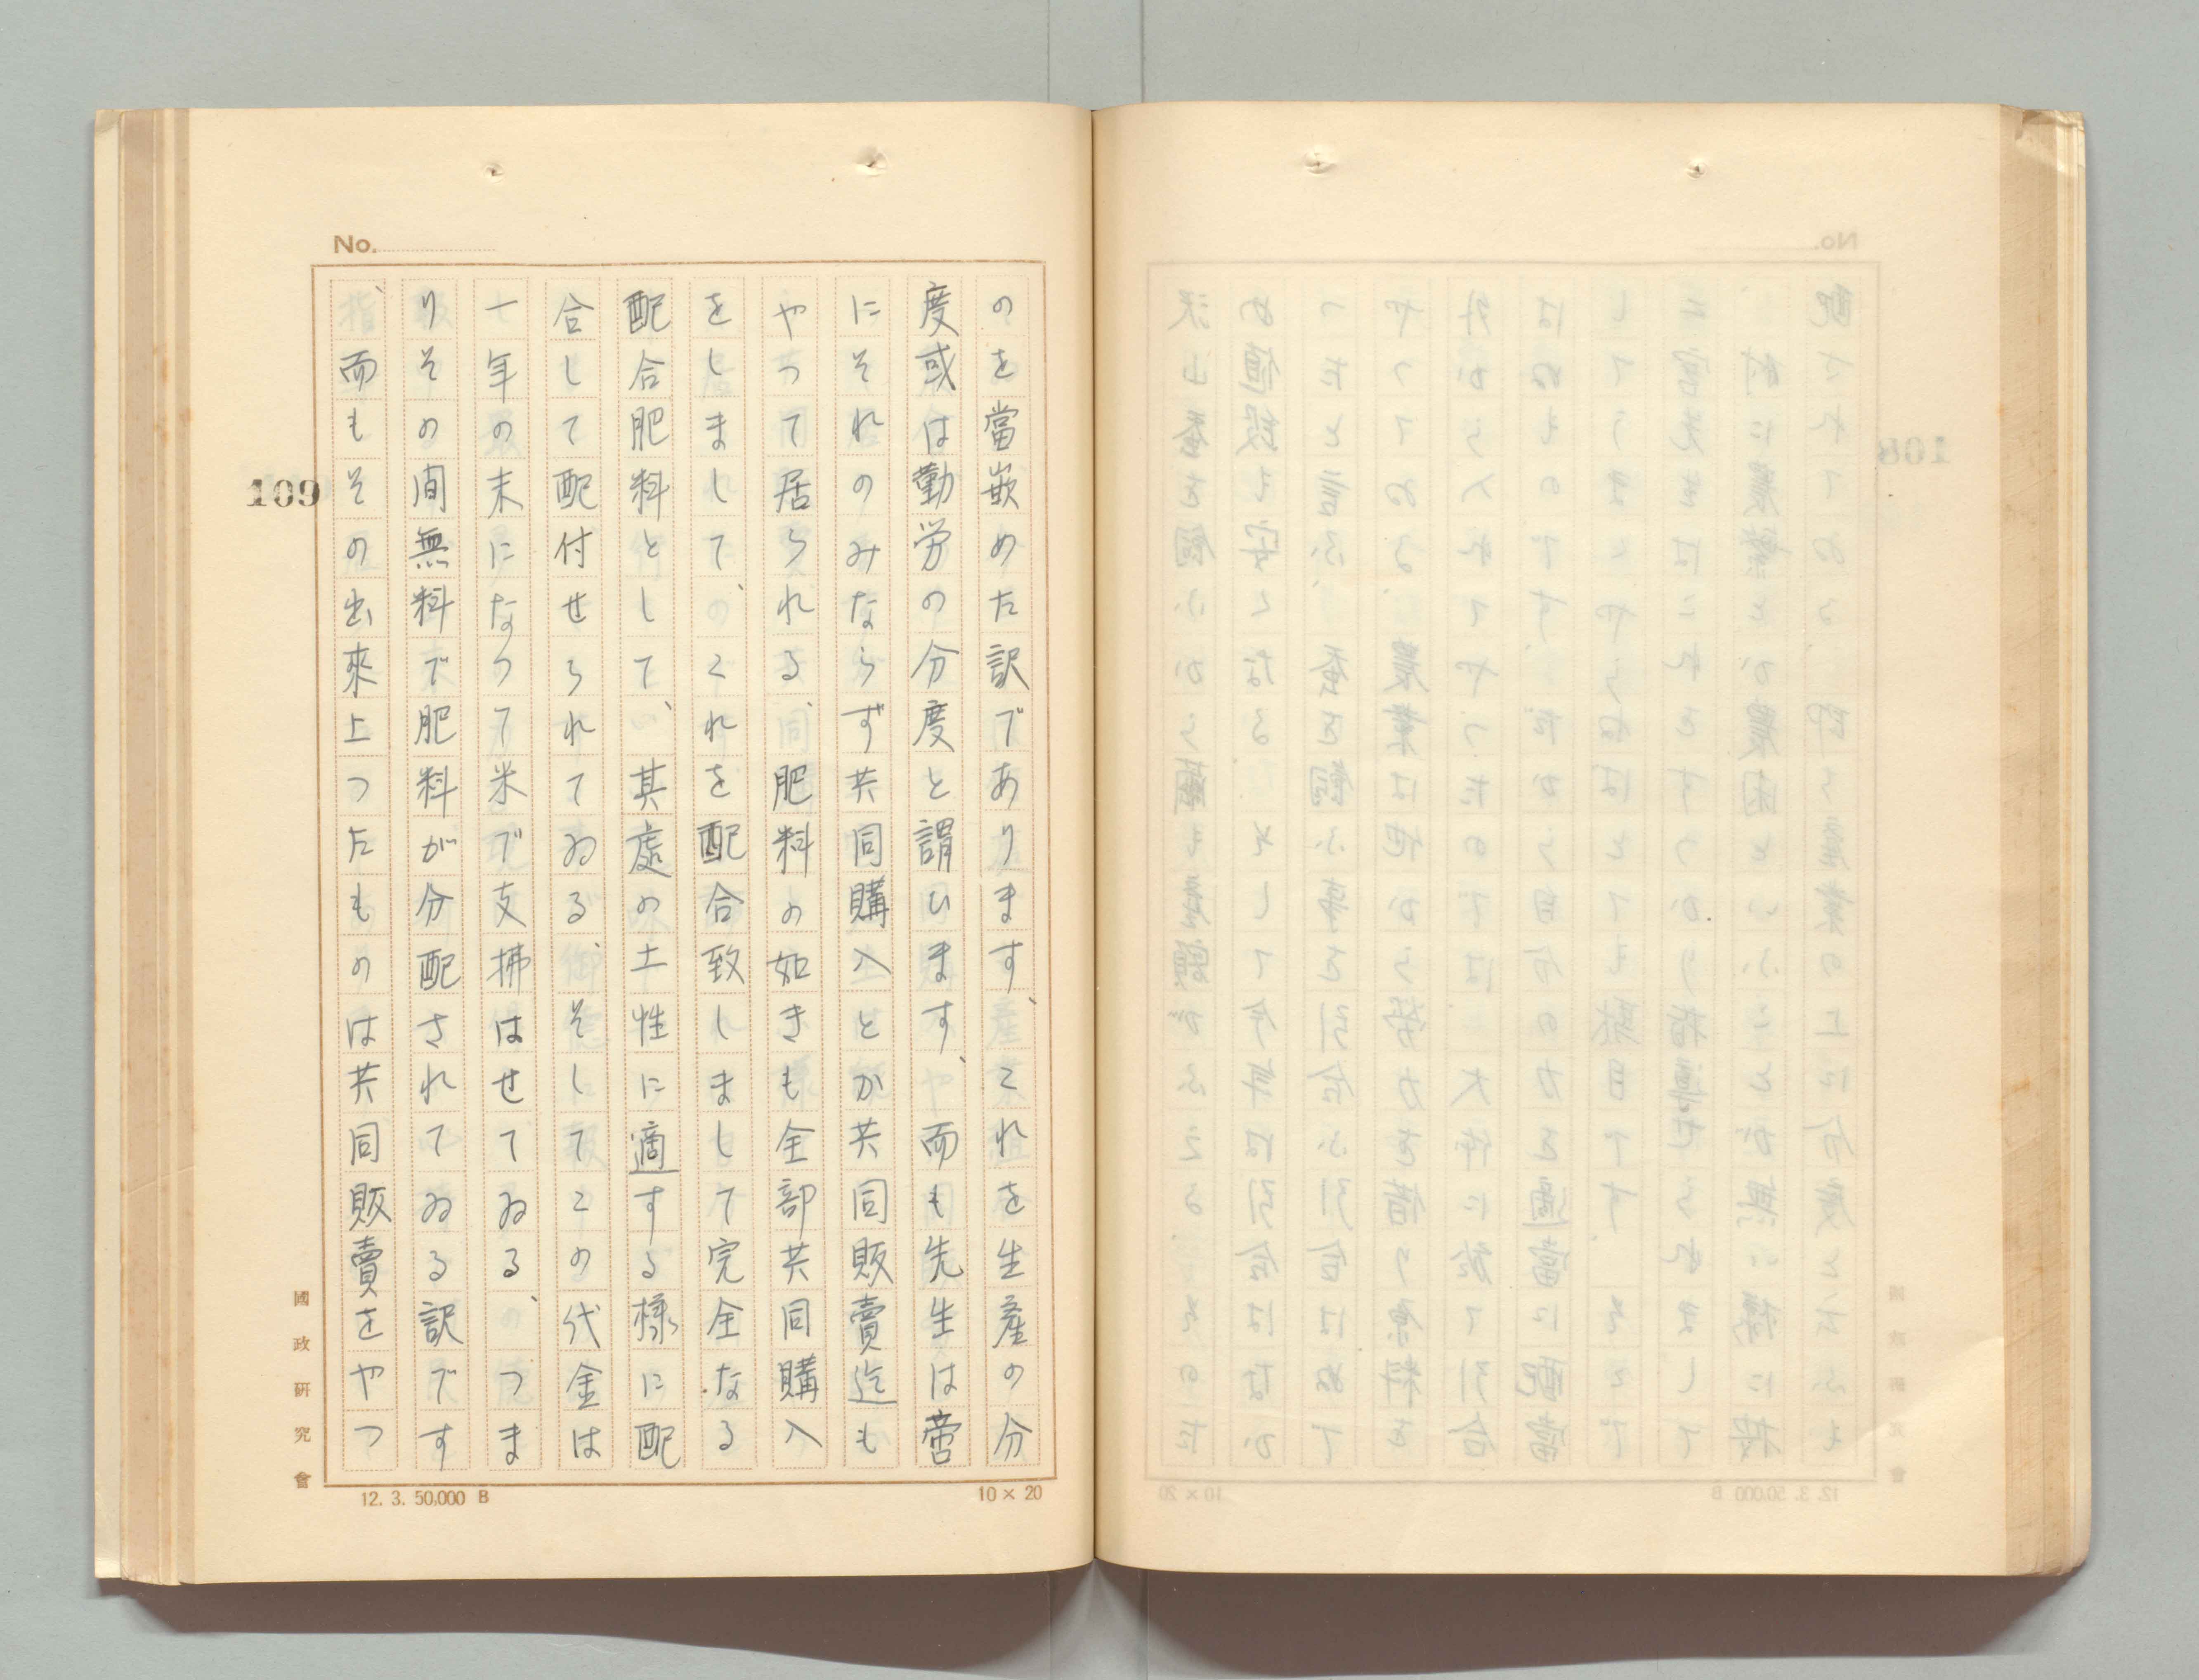 No.
109
のを當嵌めた訳であります、これを生産の分
度或は勤労の分度と謂ひます、而も先生は啻
にそれのみならず共同購入とか共同販賣迄も
やつて居られる、肥料の如きも全部共同購入
をしまして、これを配合致しまして完全なる
配合肥料として、其處の土性に適する様に配
合して配付せられてゐる、そしてこの代金は
一年の末になつて米で支拂はせてゐる、つま
りその間無料で肥料が分配されてゐる訳です
、而もその出來上つたものは共同販賣をやつ
國政研究會
12. 3. 50,000 B
10×20